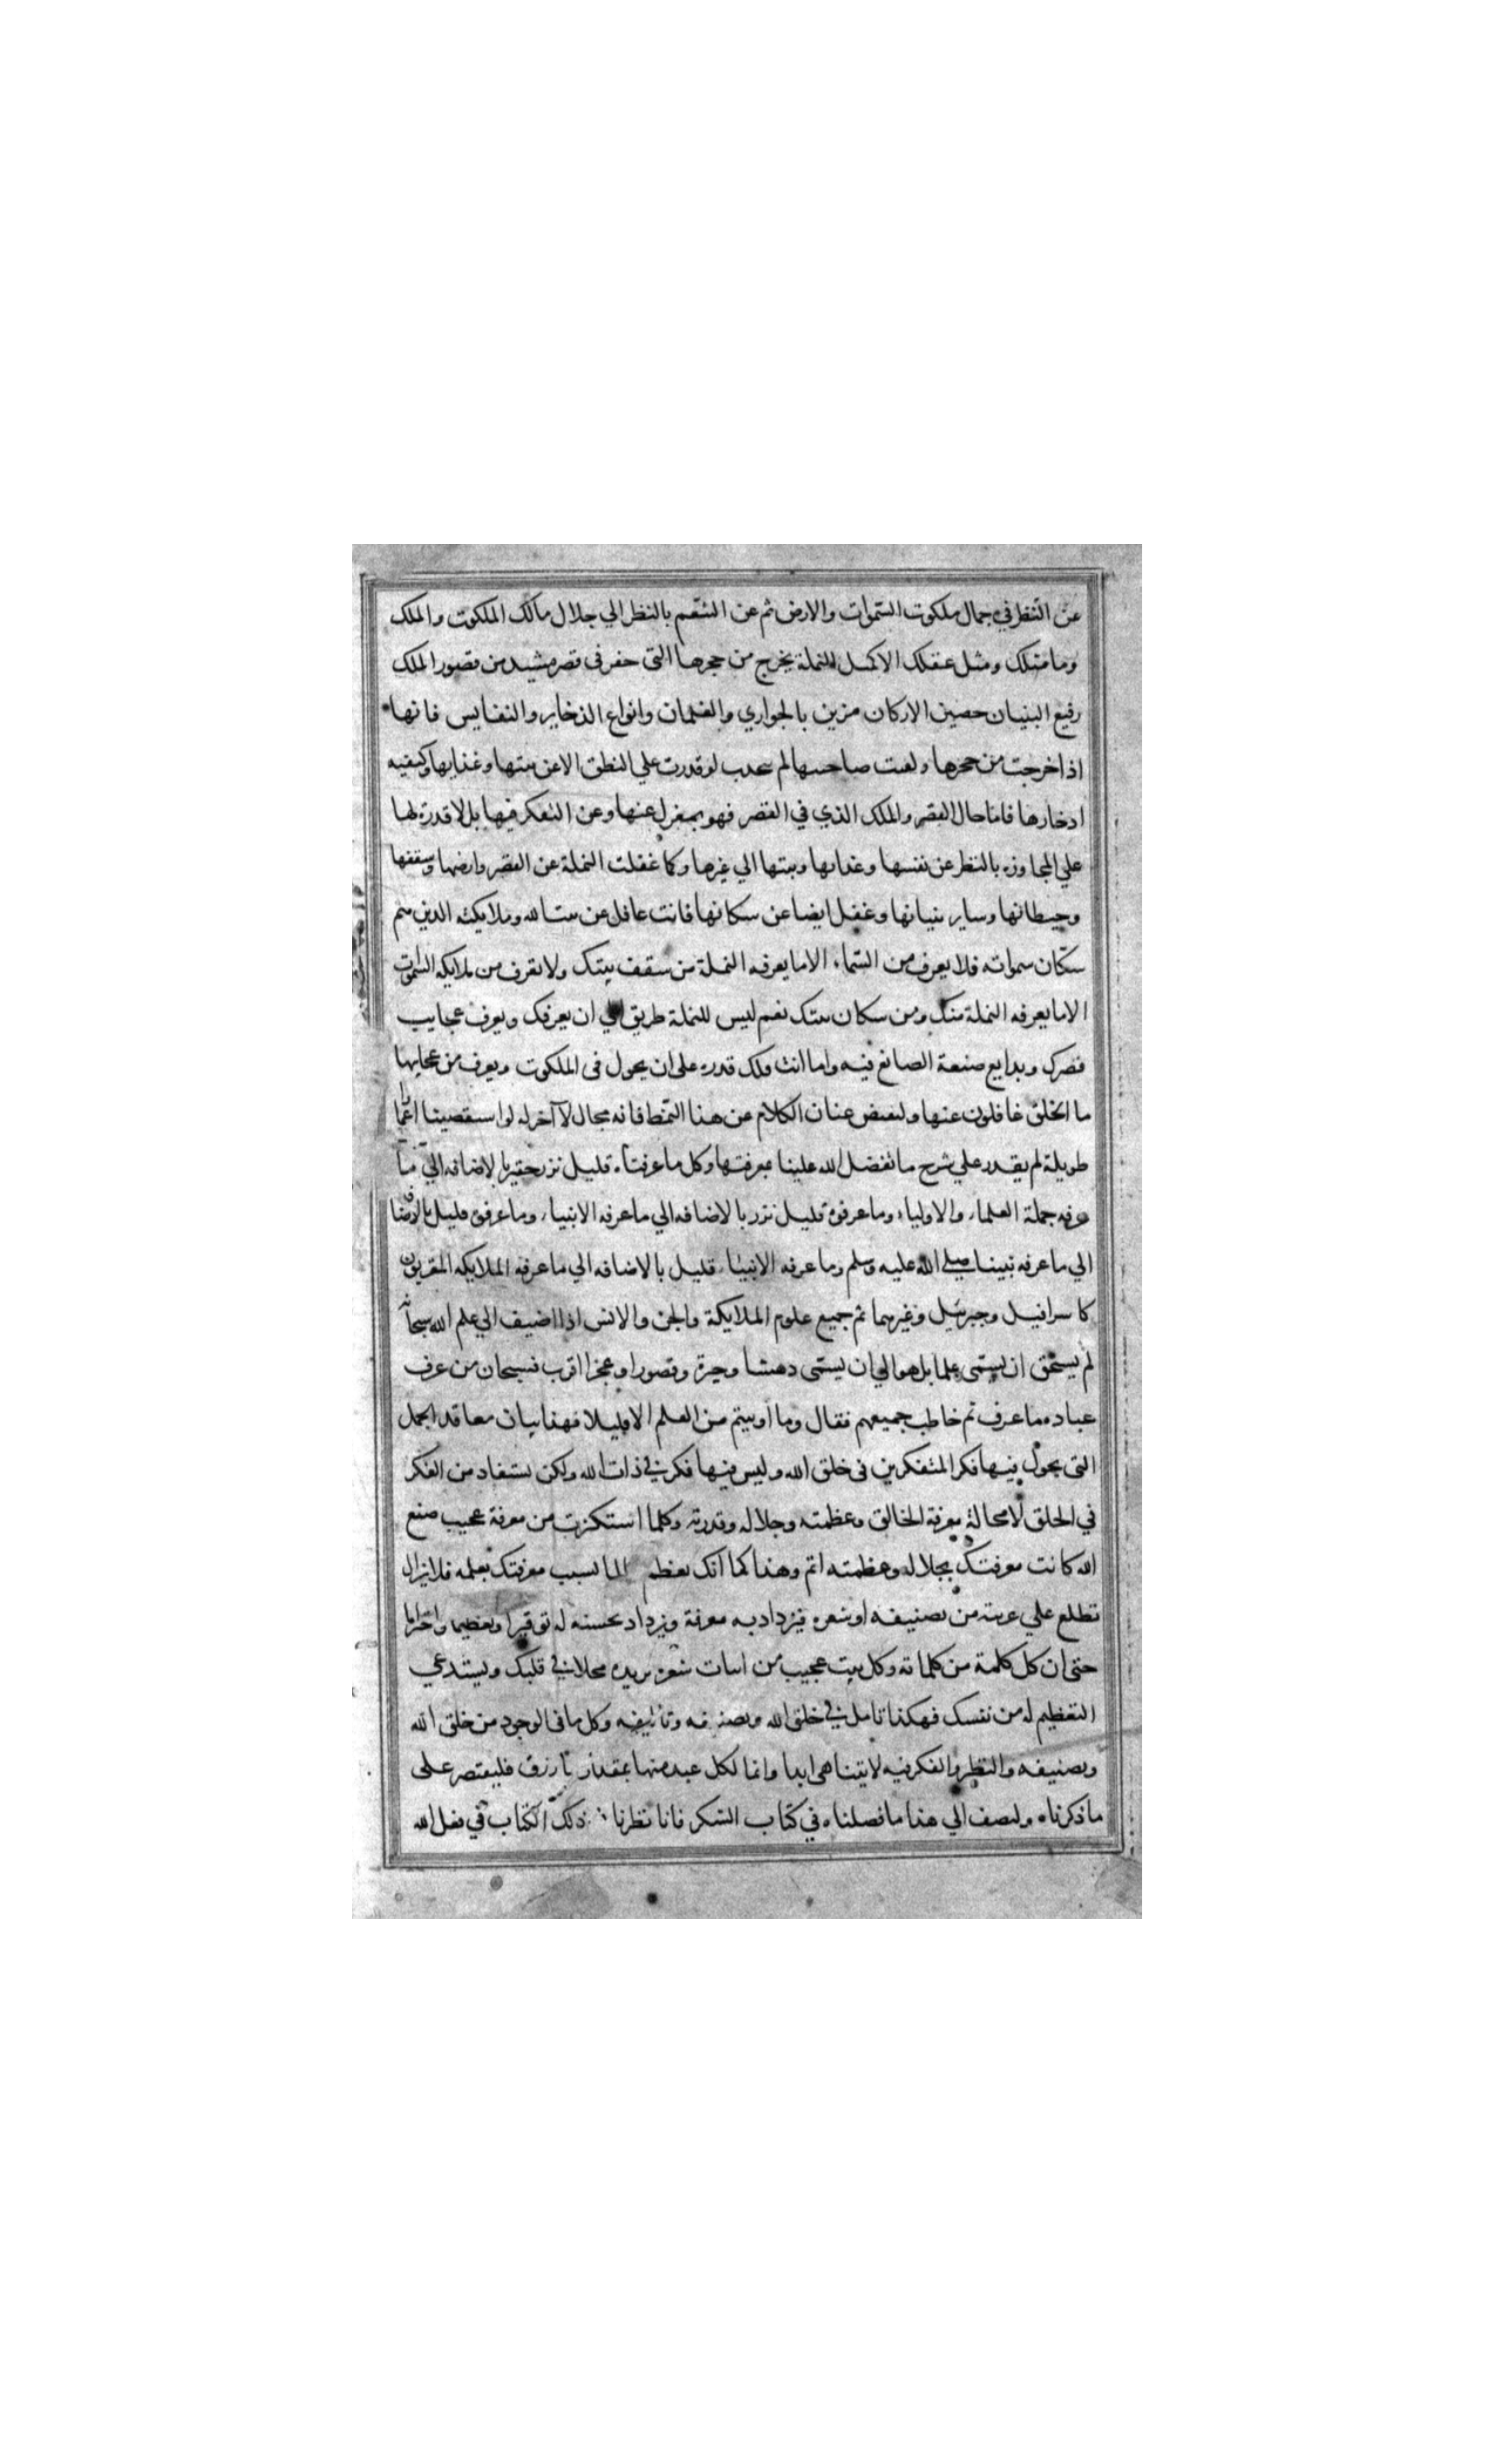 عن النّظر في جمال ملكوت السّموات والارض ثم عن التنعّم بالنظر الي جلال مالك الملكوت والملك
وما مثلك ومثل عقلك الا كمثل النملة يخرج من جحرها التى حفر فى قصر مشيد من قصور الملك
رفيع البنيان حصين الاركان مزين بالجواري والغلمان وانواع الذخاير والنفايس فانها
اذا خرجت من جحرها ولقيت صاحبها لم يتحدث لو قدرت علي النطق الا عن بيتها وغذايها وكيفيه
ادخارها فاما حال القصر والملك الذي في القصر فهو بمعزل عنها وعن التفكر فيها بل لا قدرة لها
علي المجاوزه بالنظر عن نفسها وغذايها وبيتها الي غيرها وكما غفلت النملة عن القصر وارضها وسقفها
وحيطانها وساير بنيانها وغفل ايضا عن سكانها فانت غافل عن بيت الله وملايكته الذين هم
سكّان سمواته فلا يعرف من السّماء الا ما يعرفه النملة من سقف بيتك ولا يعرف من ملايكه السّموات
الا ما يعرفه النملة منك ومن سكان بيتك نعم ليس للنملة طريق الي ان يعرفك ويعرف عجايب
قصرك وبدايع صنعة الصانع فيه واما انت فلك قدره على ان يجول فى الملكوت ويعرف من عجايبها
ما الخلق غافلون عنها ولنقبض عنان الكلام عن هذا النمط فانه مجال لا آخر له لو استقصينا اعمارا
طويلة لم يقدر علي شرح ما تفضل الله علينا بمعرفتها وكل ما عرفناه قليل نزر حقير بالاضافه الي ما
عرفه جملة العلماء والاولياء وما عرفوه قليل نزر بالاضافه الي ما عرفه الانبياء وما عرفوه قليل بالاضافة
الي ما عرفه نبينا صلي الله عليه وسلم وما عرفه الانبياء قليل بالاضافه الي ما عرفه الملايكه المقربون
كاسرافيل وجبرئيل وغيرهما ثم جميع علوم الملايكة والجن والانس اذا اضيف الي علم الله سبحانه
لم يستحق ان يسمّى علما بل هو الي ان يسمّى دهشا وحيرة وقصورا وعجزا اقرب فسبحان من عرف
عباده ما عرف ثم خاطب جميعهم فقال وما اوتيتم من العلم الا قليلا فهذا بيان معاقد الجمل
التى يجول فيها فكر المتفكرين فى خلق الله وليس فيها فكر في ذات الله ولكن يستفاد من الفكر
في الخلق لا محالة معرفة الخالق وعظمته وجلاله وقدرته وكلما استكثرت من معرفة عجيب صنع
الله كانت معرفتك بجلاله وعظمته اتم وهذا كما انك تعظم عالما بسبب معرفتك بعلمه فلا يزال
تطلع علي غريبة من تصنيفه او شعره فيزداد به معرفة ويزداد بحسنه له توقيرا وتعظيما واحتراما
حتى ان كل كلمة من كلماته وكل بيت عجيب من ابيات شعره يزيده محلا في قلبك ويستدعي
التعظيم له من نفسك فهكذا تامل في خلق الله وتصنيفه وتاليفه وكل ما فى الوجود من خلق الله
وتصنيفه والنظر والفكر فيه لا يتناهى ابدا وانما لكل عبد منها بمقدار ما رزق فليقتصر على
ما ذكرناه ولنضف الي هذا ما فصلناه في كتاب الشكر فانا نظرنا في ذلك الكتاب في فعل الله